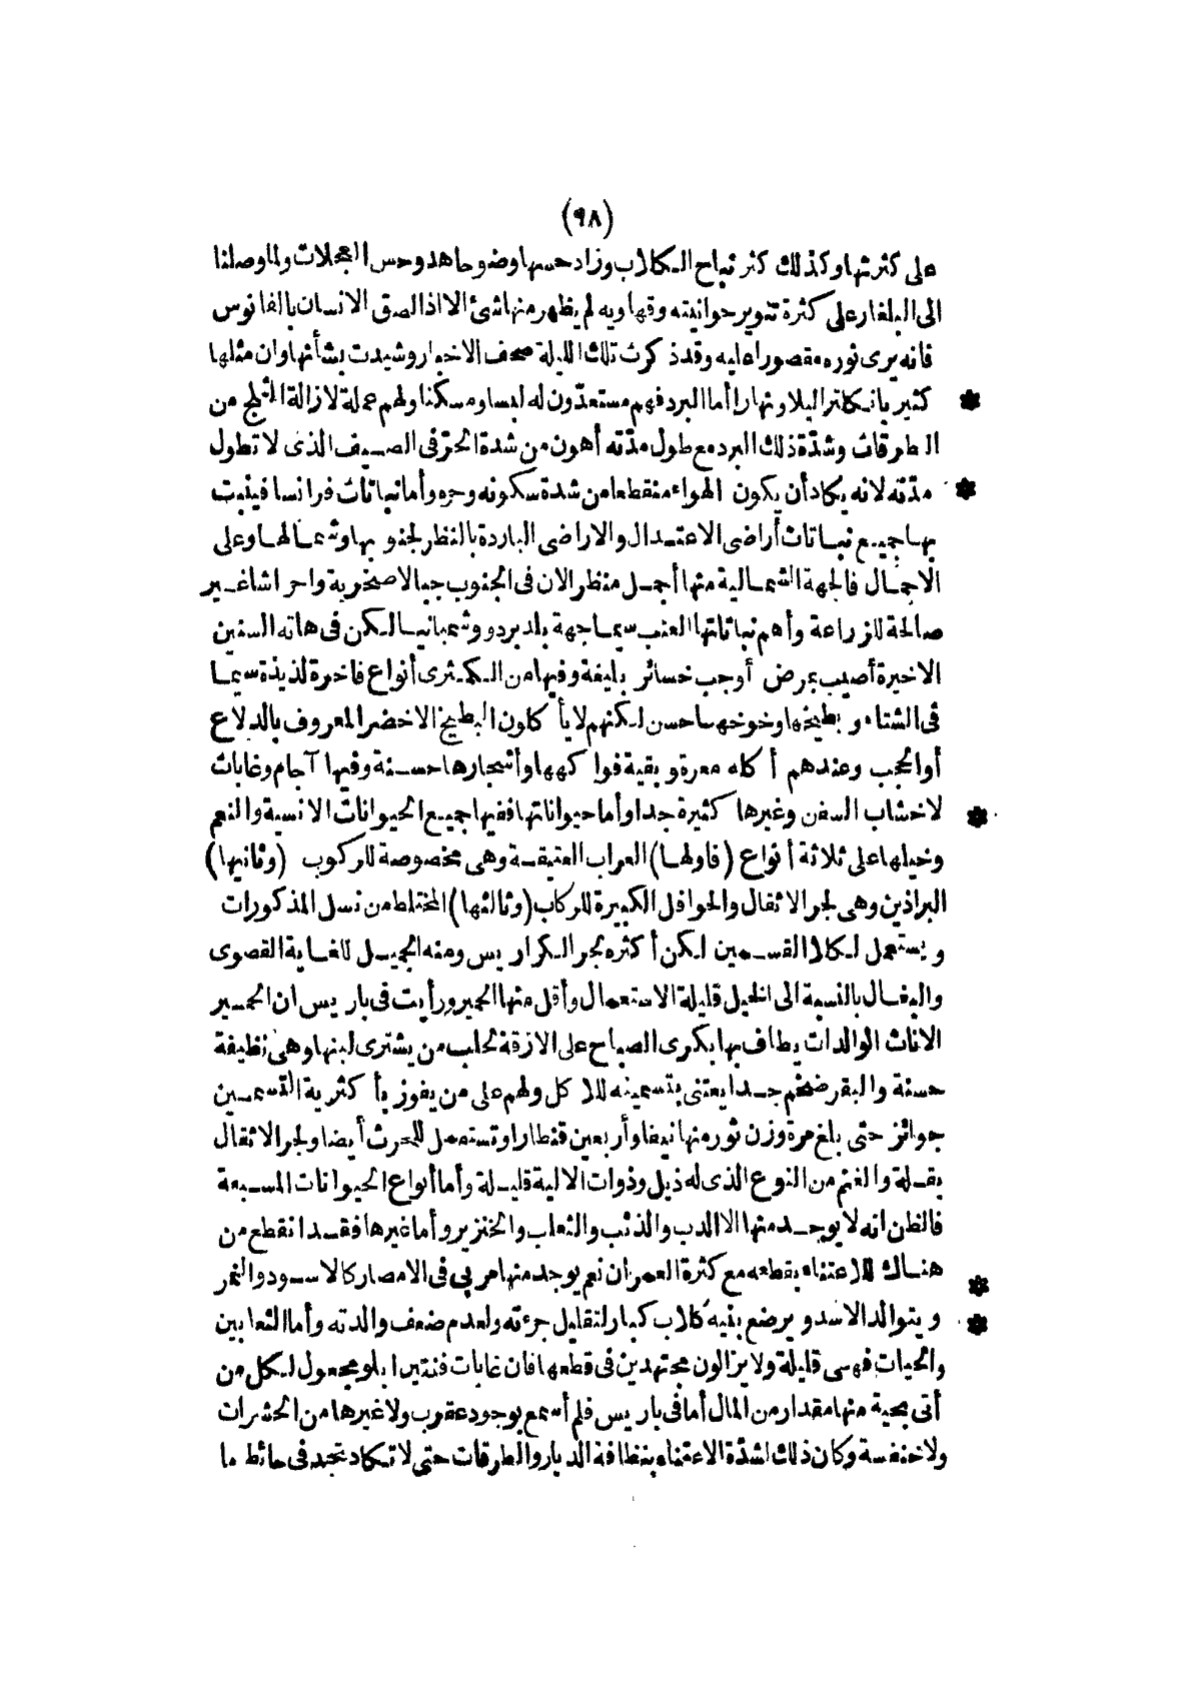 (٩٨)
على كثرتها وكذلك كثر نباح الكلاب وزاد حسها وضوحا هدو حس العجلات ولما وصلنا
الى البلغار على كثرة تنوير حوانيته وقهاويه لم يظهر منها شئ الا اذا لصق الانسان بالفانوس
فانه يرى نوره مقصورا عليه وقد ذكرت تلك الليلة صحف الاخبار وشيدت بشأنها وان مثلها
كثير بانكلترا ليلا ونهارا أما البرد فهم مستعدّون له لبسا ومسكنا ولهم عملة لازالة الثلج من *
الطرقات وشدّة ذلك البرد مع طول مدّته أهون من شدة الحرّ فى الصيف الذى لا تطول
مدّته لانه يكاد أن يكون الهواء منقطعا من شدة سكونه وحره وأما نباتات فرانسا فينبت *
بها جميع نباتات أراضى الاعتدال والاراضى الباردة بالنظر لجنوبها وشمالها وعلى
الاجمال فالجهة الشمالية منها أجمل منظر الان فى الجنوب جبالا صخرية واحراشا غير
صالحة للزراعة وأهم نباتاتها العنب سيما جهة بلد بردو وشمبانيا لكن فى هاته السنين
الاخيرة أصيب بمرض أوجب خسائر بليغة وفيها من الكمثرى أنواع فاخرة لذيذة سيما
فى الشتاء و بطيخها وخوخها حسن لكنهم لا يأكلون البطيخ الاخضر المعروف بالدلاع
أو الحبحب وعندهم أكله معرة و بقية فواكهها وأشجارها حسنة وفيها آجام وغابات
لاخشاب السفن وغيرها كثيرة جدا وأما حيواناتها ففيها جميع الحيوانات الانسية والنعم *
وخيلها على ثلاثة أنواع (فاولها) العراب العتيقة وهى مخصوصة للركوب (وثانيها)
البراذين وهى لجر الاثقال والحوافل الكبيرة للركاب (وثالثها) المختلط من نسل المذكورات
و يستعمل لكلا القسمين لكن أكثره لجر الكراريس ومنه الجميل للغاية القصوى
والبغال بالنسبة الى الخيل قليلة الاستعمال وأقل منها الحمير ورأيت فى باريس ان الحمير
الاناث الوالدات يطاف بها بكرى الصباح على الازقة لحلب من يشترى لبنها وهى نظيفة
حسنة والبقر ضخم جدا يعتنى بتسمينه للاكل ولهم على من يفوز بأكثرية التسمين
جوائز حتى بلغ مرة وزن ثور منها نيفا وأربعين قنطارا وتستعمل للحرث أيضا ولجر الاثقال
بقلة والغنم من النوع الذى له ذيل وذوات الالية قليلة وأما أنواع الحيوانات المسبعة
فالظن انه لا يوجد منها الا الدب والذئب والثعلب والخنزير وأما غيرها فقد انقطع من
هناك للاعتناء بقطعه مع كثرة العمران نعم يوجد منها مربي فى الامصار كالاسود والنمر *
و يتوالد الاسد و يرضع بنيه كلاب كبار لتقليل جرءته ولعدم ضعف والدته وأما الثعابين *
والحيات فهى قليلة ولا يزالون مجتهدين فى قطعها فان غابات فنتيرابلو مجعول لكل من
أتى بحية منها مقدار من المال أما فى باريس فلم أسمع بوجود عقرب ولا غيرها من الحشرات
ولا خنفسة وكان ذلك لشدّة الاعتناء بنظافة الديار والطرقات حتى لا تكاد تجد فى حائط ما